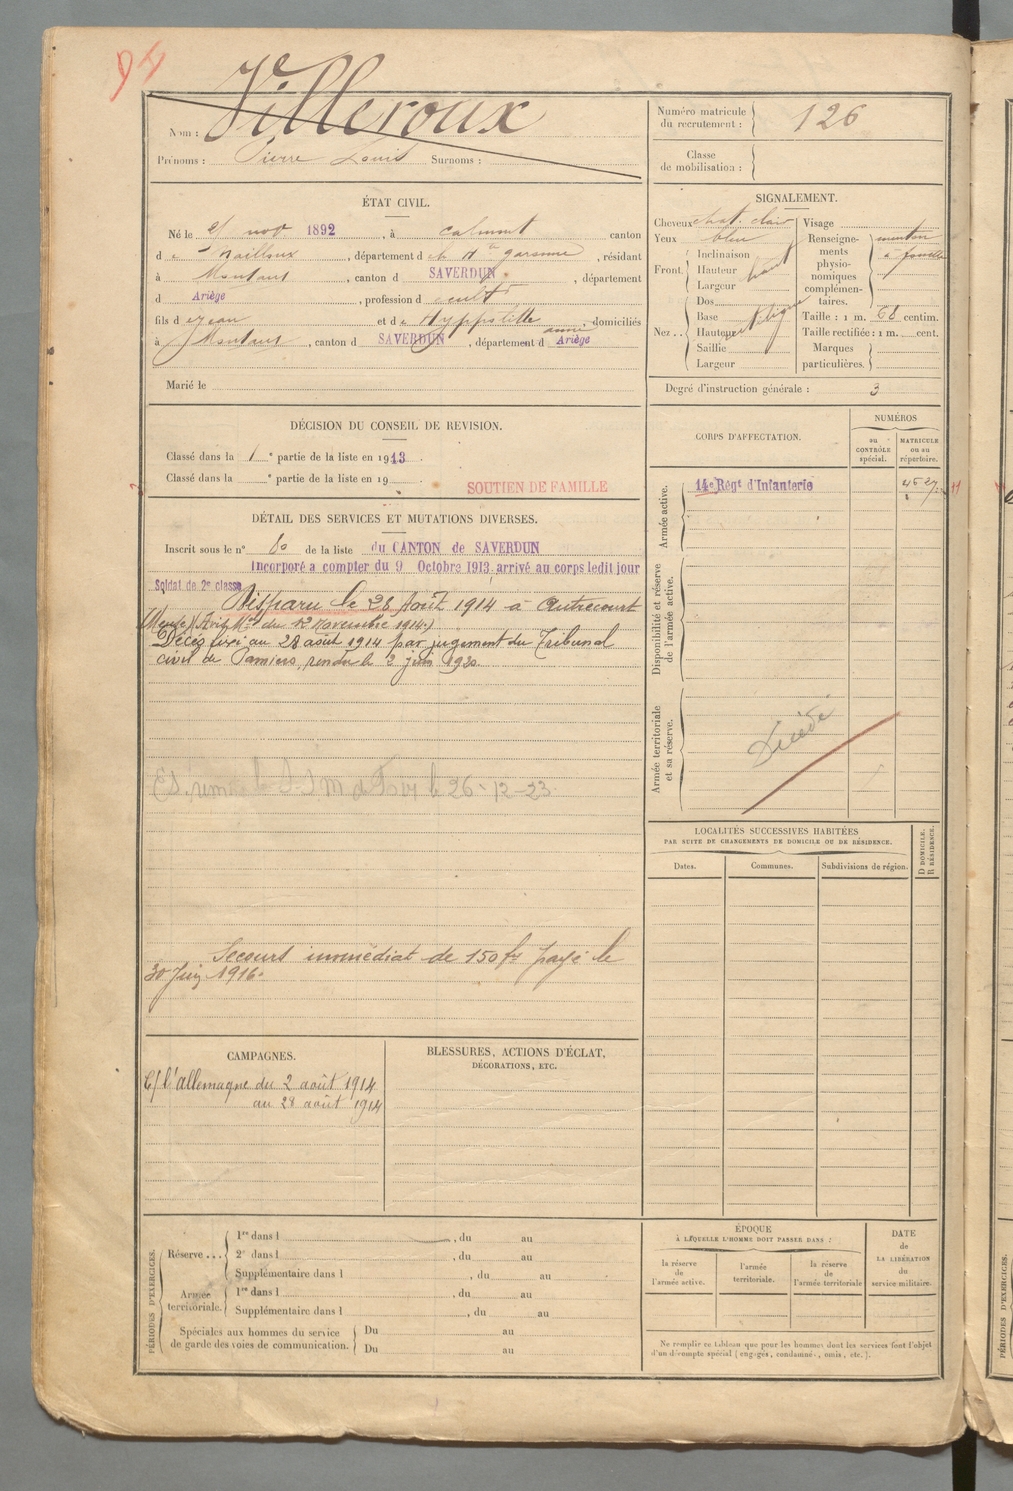 94
Nom : Villeroux
Prénoms : Pierre Louis Surnoms :
Numéro matricule du recrutement : 126
Classe de mobilisation :
ÉTAT CIVIL.
Né le nov 1892, à calmont canton
de Nailloux, département de la Hte garonne, résidant
à Montaut, canton d SAVERDUN, département
d Ariège, profession de cultr
fils de Jean et de Hyppolitte anne, domiciliés
à Montaut, canton d SAVERDUN, département d Ariège
Marié le
SIGNALEMENT.
Cheveux chat. clair
Yeux bleu
Front. Inclinaison
Hauteur haut
Largeur
Nez.. Dos
Base
Hauteur
Saillie
Largeur
Visage
Renseignements physionomiques complémentaires. menton à
Taille : 1 m. 68 centim.
Taille rectifiée : 1 m. cent.
Marques particulières.
Degré d'instruction générale : 3
DÉCISION DU CONSEIL DE REVISION.
Classé dans la 1e partie de la liste en 1913.
Classé dans la e partie de la liste en 19
SOUTIEN DE FAMILLE
DÉTAIL DES SERVICES ET MUTATIONS DIVERSES.
Inscrit sous le n° 80 de la liste du CANTON de SAVERDUN
Incorporé a compter du 9 Octobre 1913 arrivé au corps ledit jour
Soldat de 2e classe
Disparu le 28 Août 1914 à Autrecourt
Meuse (Avis Mel du 12 novembre 1914.)
Décès fixé au 28 août 1914 par jugement du Tribunal
civil de Pamiers, rendu le 2 juin 1920.
le 26-12-23.
Secours immédiat de 150 fs payé le
30 Juin 1916.
CORPS D'AFFECTATION.
NUMÉROS
au CONTRÔLE spécial.
MATRICULE ou au répertoire.
Armée active.
14e Régt d'Infanterie
Disponibilité et réserve de l'armée active.
Armée territoriale et sa réserve.
Décédé
LOCALITÉS SUCCESSIVES HABITÉES
PAR SUITE DE CHANGEMENTS DE DOMICILE OU DE RÉSIDENCE.
Dates.
Communes.
Subdivisions de région.
D DOMICILE.
R RÉSIDENCE.
CAMPAGNES.
C/ l'allemagne du 2 août 1914
au 28 août 1914
BLESSURES, ACTIONS D'ÉCLAT,
DÉCORATIONS, ETC.
PÉRIODES D'EXERCICES.
Réserve... 1re dans l , du au
2e dans l , du au
Supplémentaire dans l , du au
Armée territoriale. 1re dans l , du au
Supplémentaire dans l , du au
Spéciales aux hommes du service de garde des voies de communication. Du au
Du au
ÉPOQUE
À LAQUELLE L'HOMME DOIT PASSER DANS :
la réserve de l'armée active.
l'armée territoriale.
la réserve de l'armée territoriale
DATE
de
LA LIBÉRATION
du
service militaire.
Ne remplir ce tableau que pour les hommes dont les services font l'objet
d'un décompte spécial (engagés, condamnés, omis, etc.).
PÉRIODES D'EXERCICES.